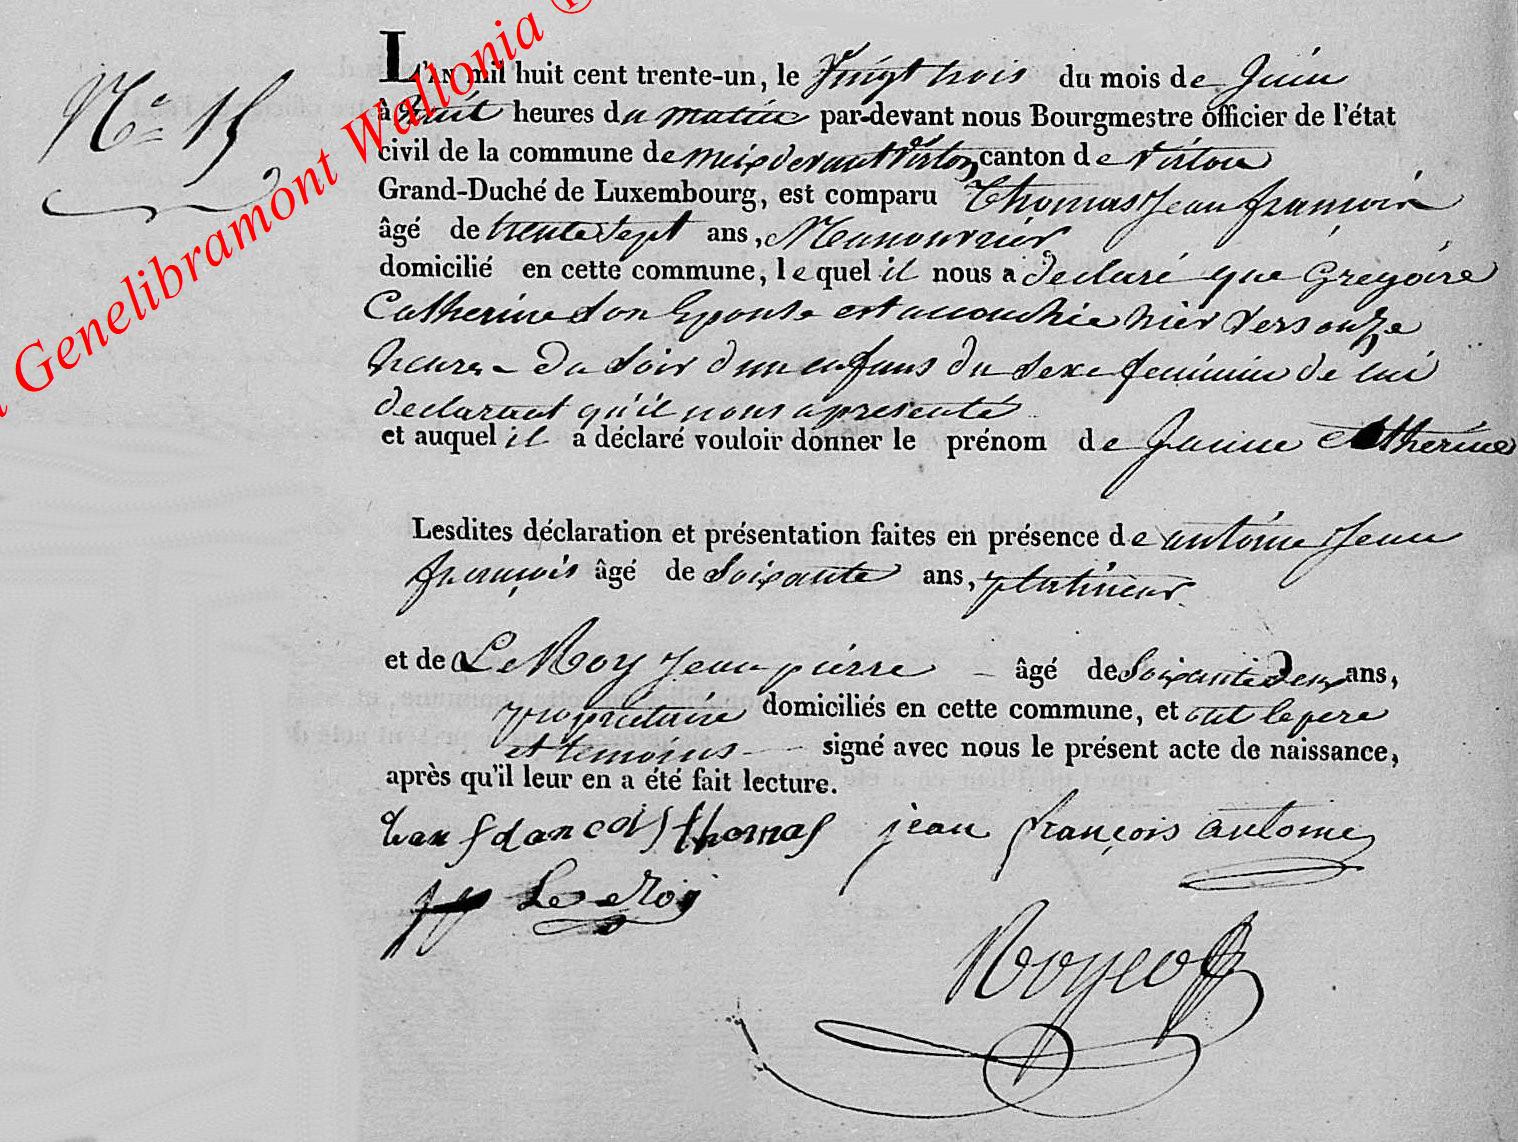 Genelibramont Wallonia ®
N° 15
L'AN mil huit cent trente-un, le Vingt trois du mois de Juin
à huit heures du matin par-devant nous Bourgmestre officier de l'état
civil de la commune de meix devant Virton, canton de Virton
Grand-Duché de Luxembourg, est comparu Thomas Jean françois
âgé de trente sept ans, Manouvrier
domicilié en cette commune, lequel il nous a declaré que Gregoire
Catherine son Epouse est accouchée hier vers onze
heures du soir d'un enfans du sexe feminin de lui
declarant qu'il nous a presenté
et auquel il a déclaré vouloir donner le prénom de Jeanne Catherine
Lesdites déclaration et présentation faites en présence de antoine Jean
françois âgé de soixante ans, platineur
et de Le Roy Jean pierre âgé de soixante deux ans,
propriétaire domiciliés en cette commune, et ont le pere
et temoins signé avec nous le présent acte de naissance,
après qu'il leur en a été fait lecture.
thomas jean françois antoine
Le Roy